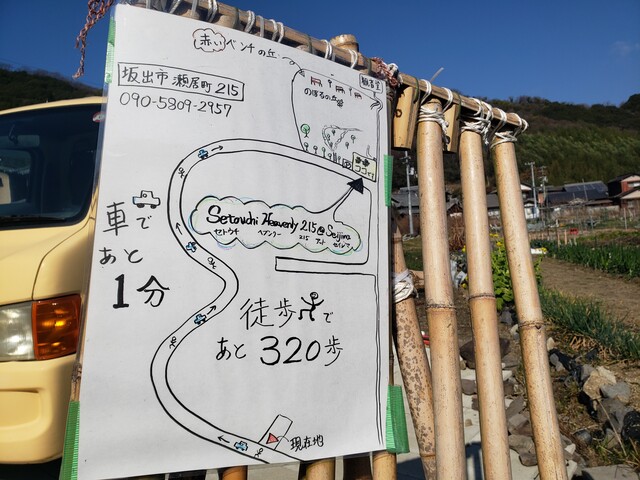 赤いベンチの丘
観音堂
坂出市瀬居町215
090-5809-2957
のぼるの丘
ココ!!
Setouchi Heavenly 215@Seijima
セトウチ ヘブンリー 215 アット セイジマ
車で
あと
1分
徒歩で
あと320歩
現在地